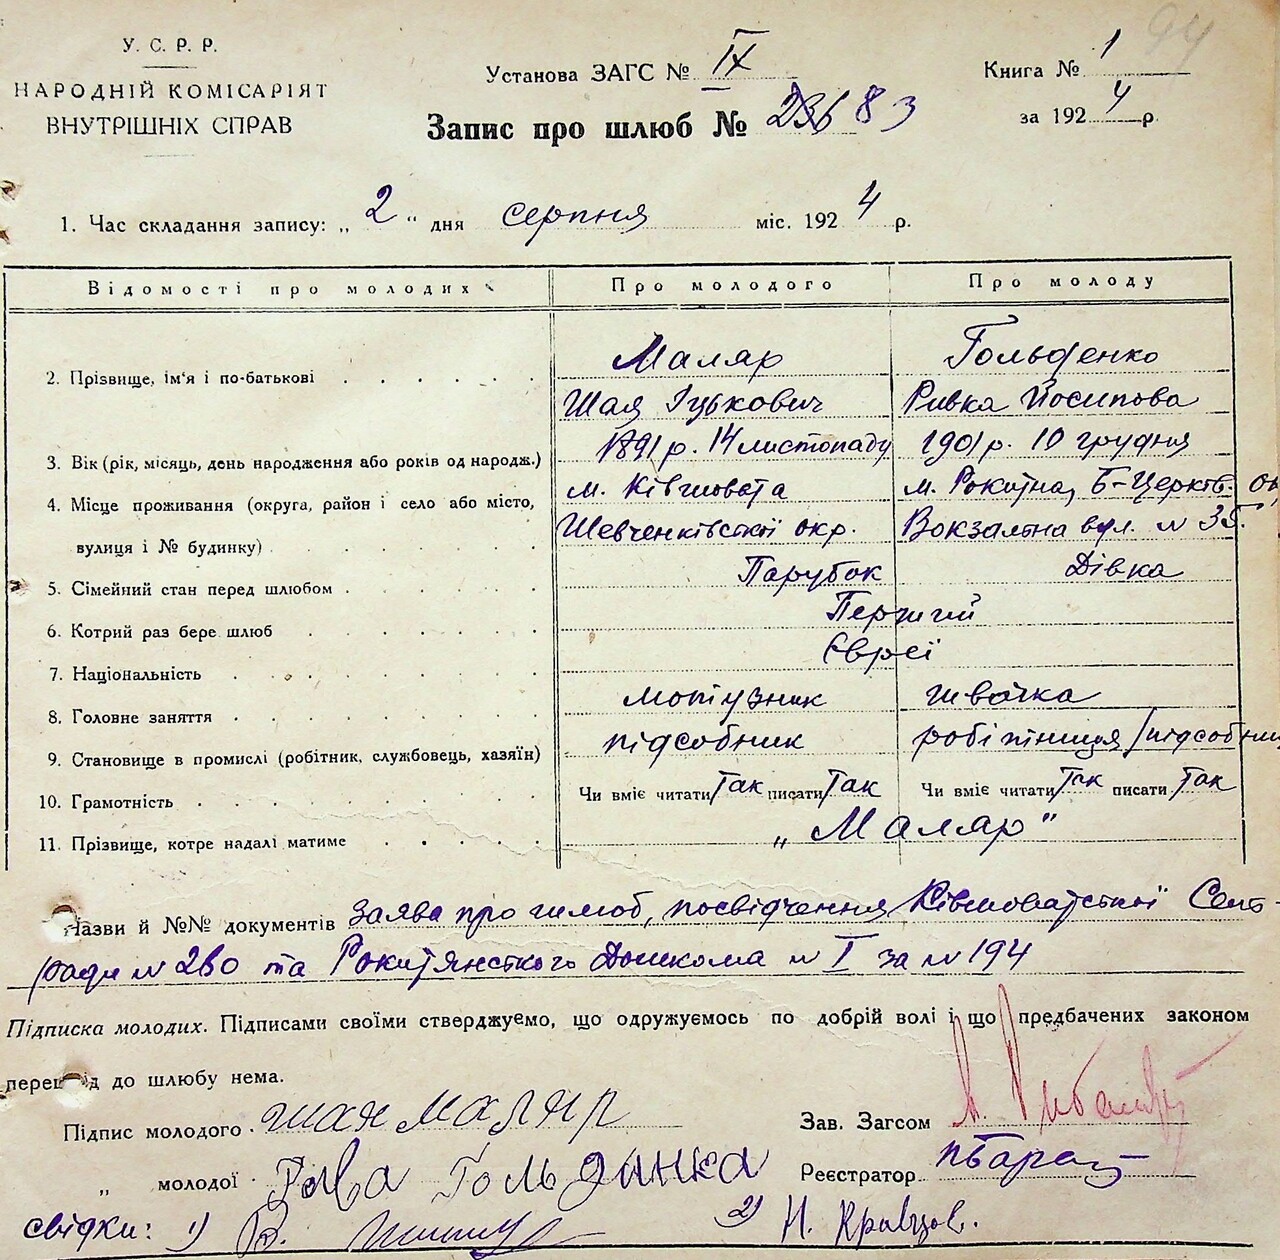 94
У. С. Р. Р.
НАРОДНІЙ КОМІСАРІЯТ
ВНУТРІШНІХ СПРАВ
Установа ЗАГС № IX
Книга № 1
за 1924 р.
Запис про шлюб № 236 83
1. Час складання запису: „ 2 “ дня серпня міс. 1924 р.
Відомості про молодих Про молодого Про молоду
2. Прізвище, ім'я і по-батькові Маляр Гольденко
Шая Іцькович Ривка Йосипова
3. Вік (рік, місяць, день народження або років од народж.) 1891 р. 14 листопаду 1901 р. 10 грудня
4. Місце проживання (округа, район і село або місто, м. Ківшовата м. Рокитна, Б-Церків. ок
вулиця і № будинку) Шевченківської окр. Вокзальна вул. №
5. Сімейний стан перед шлюбом Парубок Дівка
6. Котрий раз бере шлюб Перший
7. Національність Євреї
8. Головне заняття мотузник швачка
9. Становище в промислі (робітник, службовець, хазяїн) підсобник робітниця /підсобниц
10. Грамотність Чи вміє читати Так писати Так Чи вміє читати Так писати Так
11. Прізвище, котре надалі матиме „Маляр"
Назви й №№ документів заява про шлюб, посвідчення Ківшоватської Сель-
ради № 280 та Рокитянського за № 194
Підписка молодих. Підписами своїми стверджуємо, що одружуємось по добрій волі і що предбачених законом
перешкод до шлюбу нема.
Підпис молодого шая маляр Зав. Загсом
„ молодої Гольданка Реєстратор
свідки: 1) В. 2) Н. Кравцов.